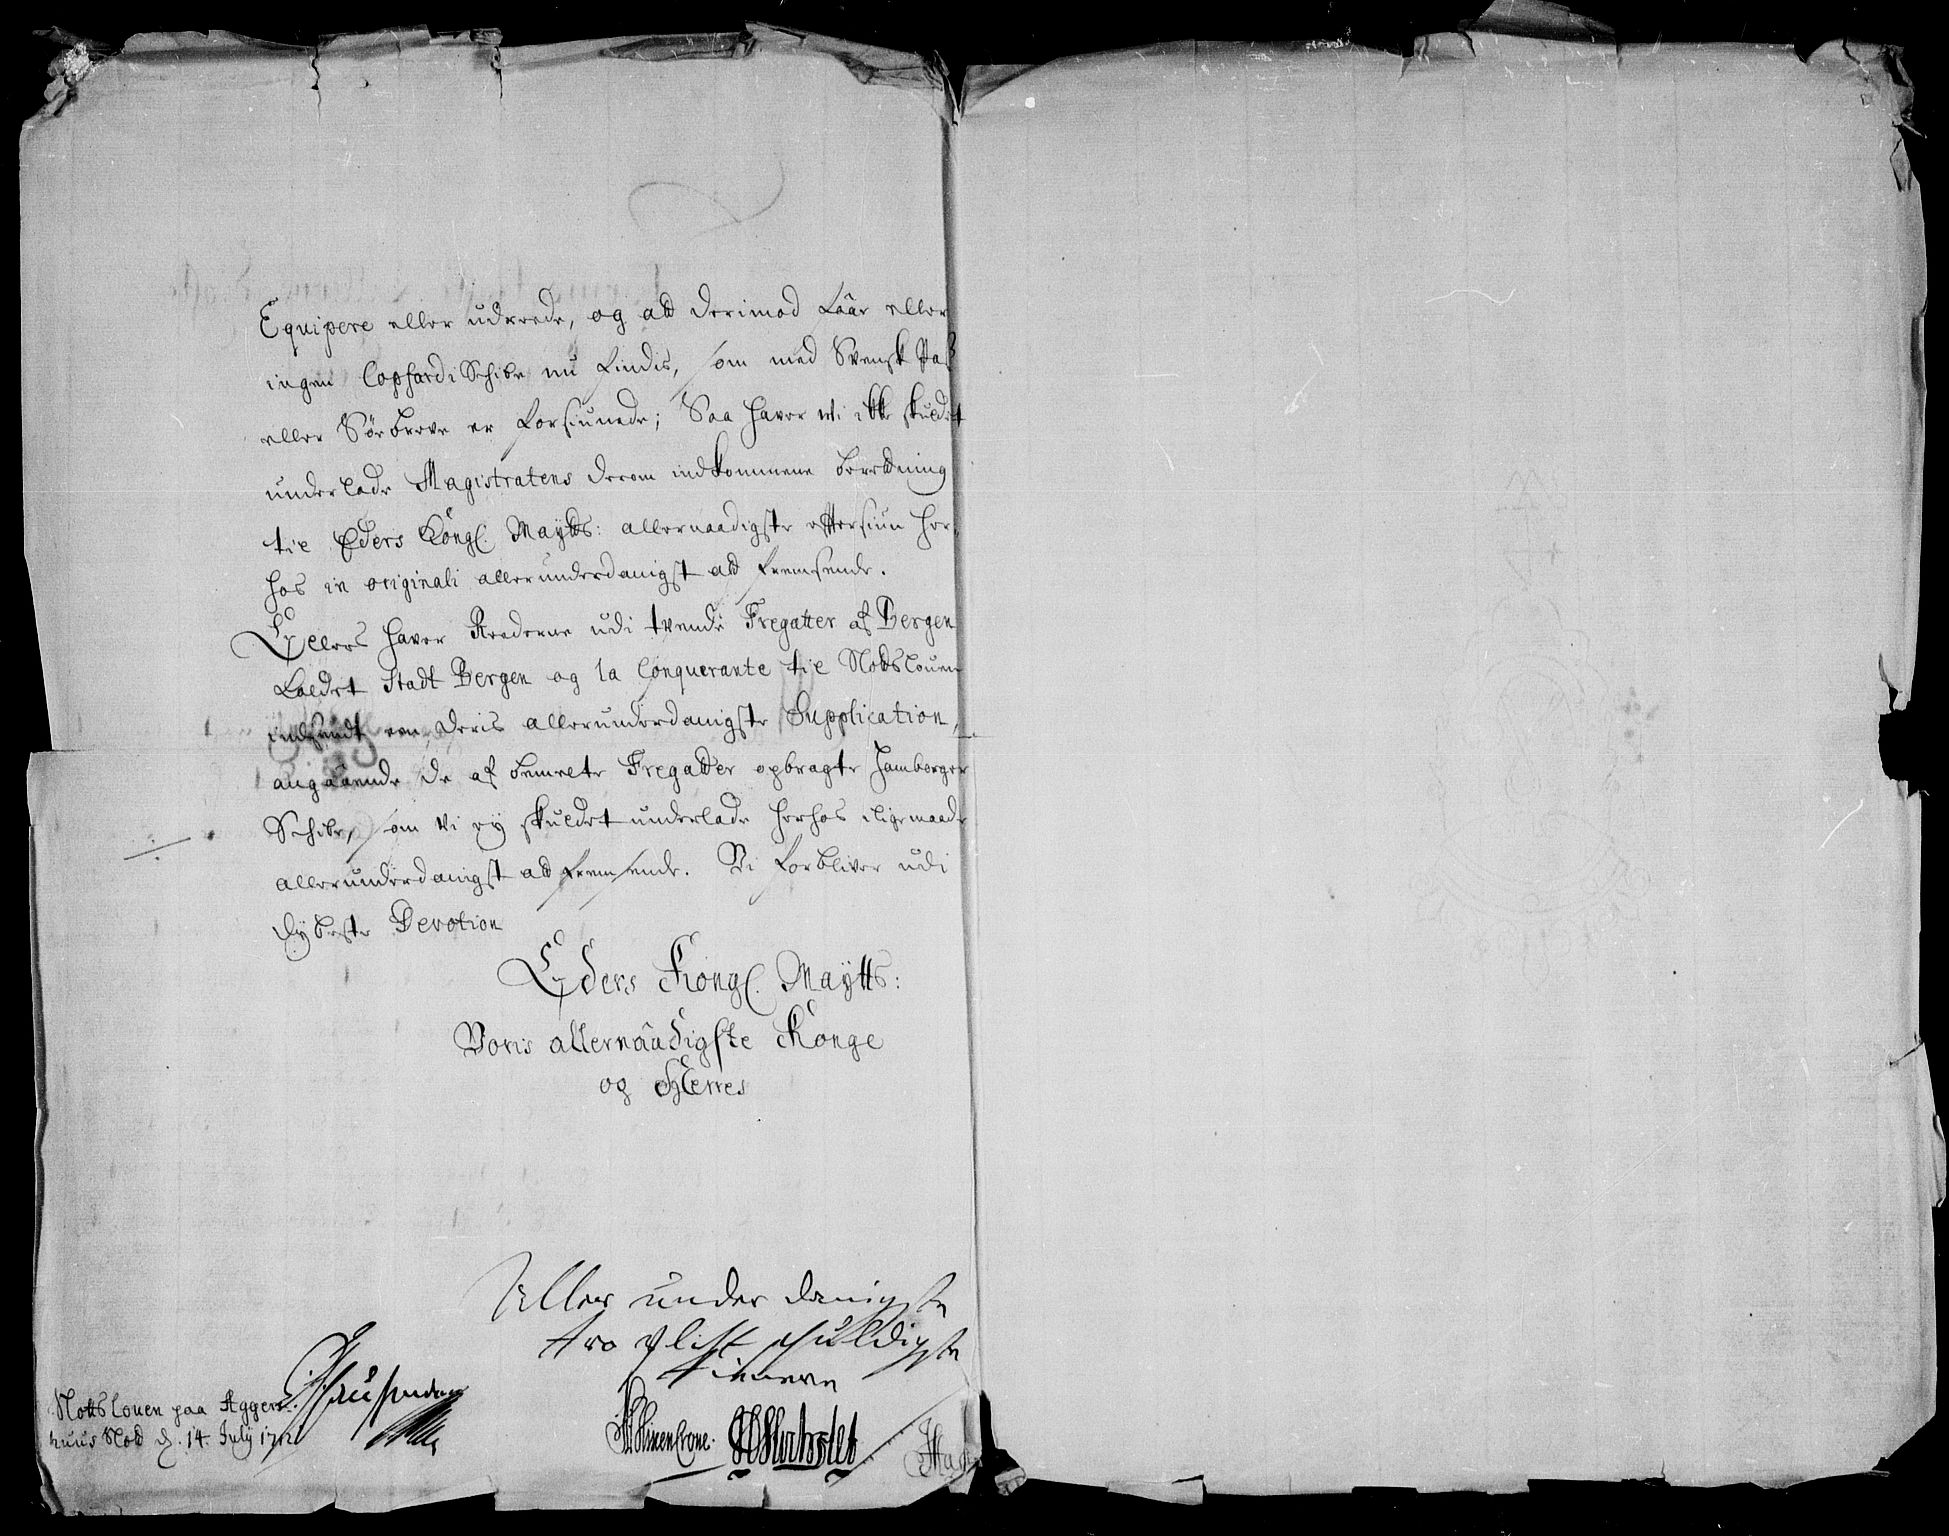 Equipere eller udreede, og att derimod faar eller
ingen CopfardiSchibe nu findis, som med Svensk Pas
eller Søebreve er forsiunede; Saa hafver wi ikke skuldet
underlade Magistratens derom indkommene beretning
til Eders Kongl. Maytts: allernaadigste eftersiun her,
hos in originali allerunderdanigst att fremsende.
Ellers hafver Reederne udi tvende Fregatter af Bergen
kaldet Stadt Bergen og la Conquerante til Slotsloven
indsendt een deris allerunderdanigste Supplication,
angaaende de af bemelte Fregatter opbragte Hamborger
Schibe, som vi ey skuldet underlade herhos iligemaade
allerunderdanigst att fremsende. Vi forbliver udi
dybeste Devotion
Eders Kongl. Maytts:
Voris allernaadigste Konge
og Herres
Aller under danigste
tro pligt schuldigste
tienere
Slotts Louen paa Aggers-
huus Slot d. 14. July 1712